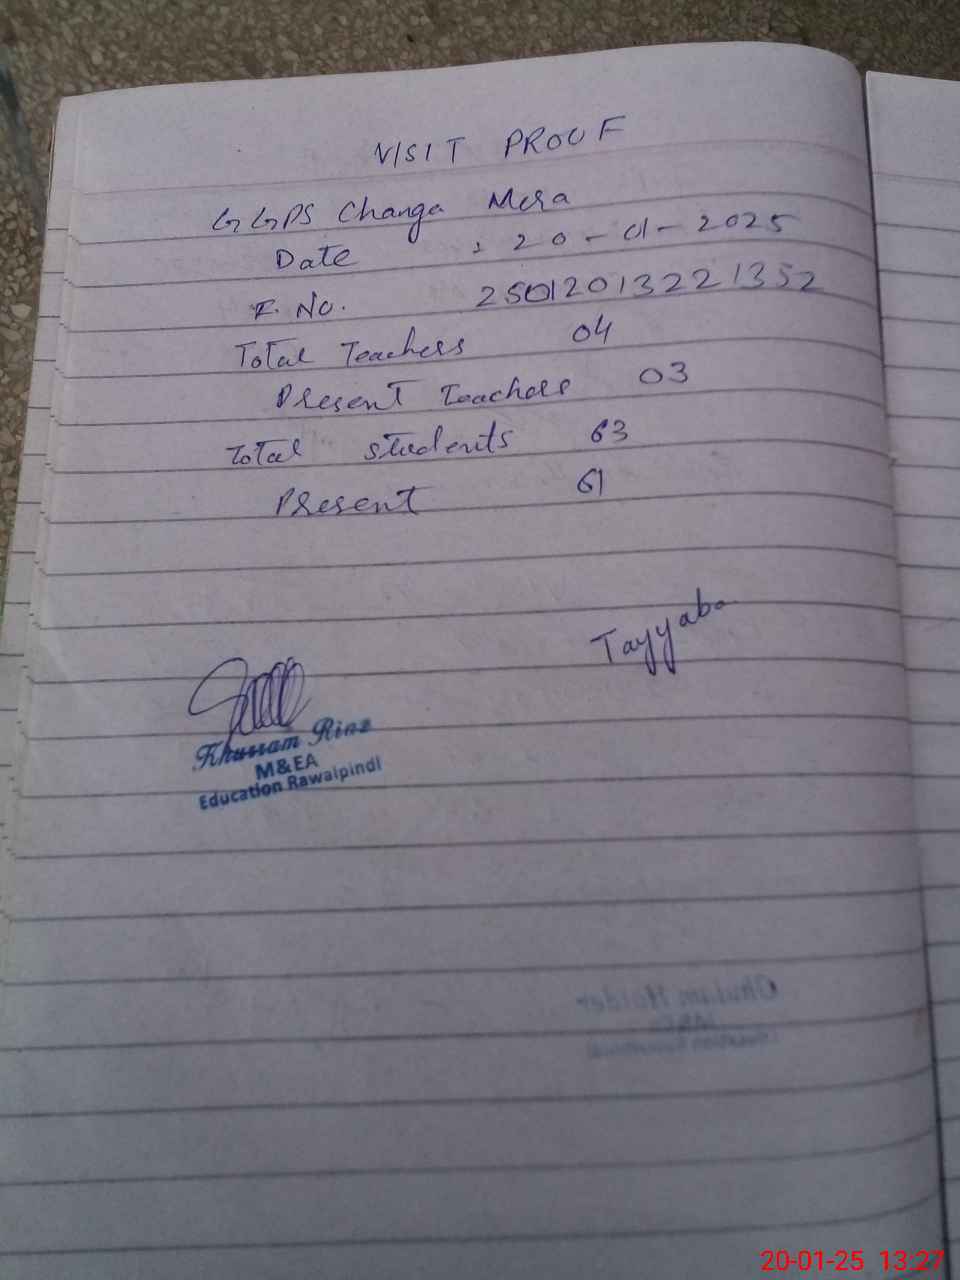 VISIT PROOF
GGPS Changa Mera
Date : 20-01-2025
F. No. 250120132213 52
Total Teachers 04
Present Teachers 03
Total students 63
Present 61
Tayyaba
Khurram Riaz
M&EA
Education Rawalpindi
Ghulam Haider
M&EA
Education Rawalpindi
20-01-25 13:27